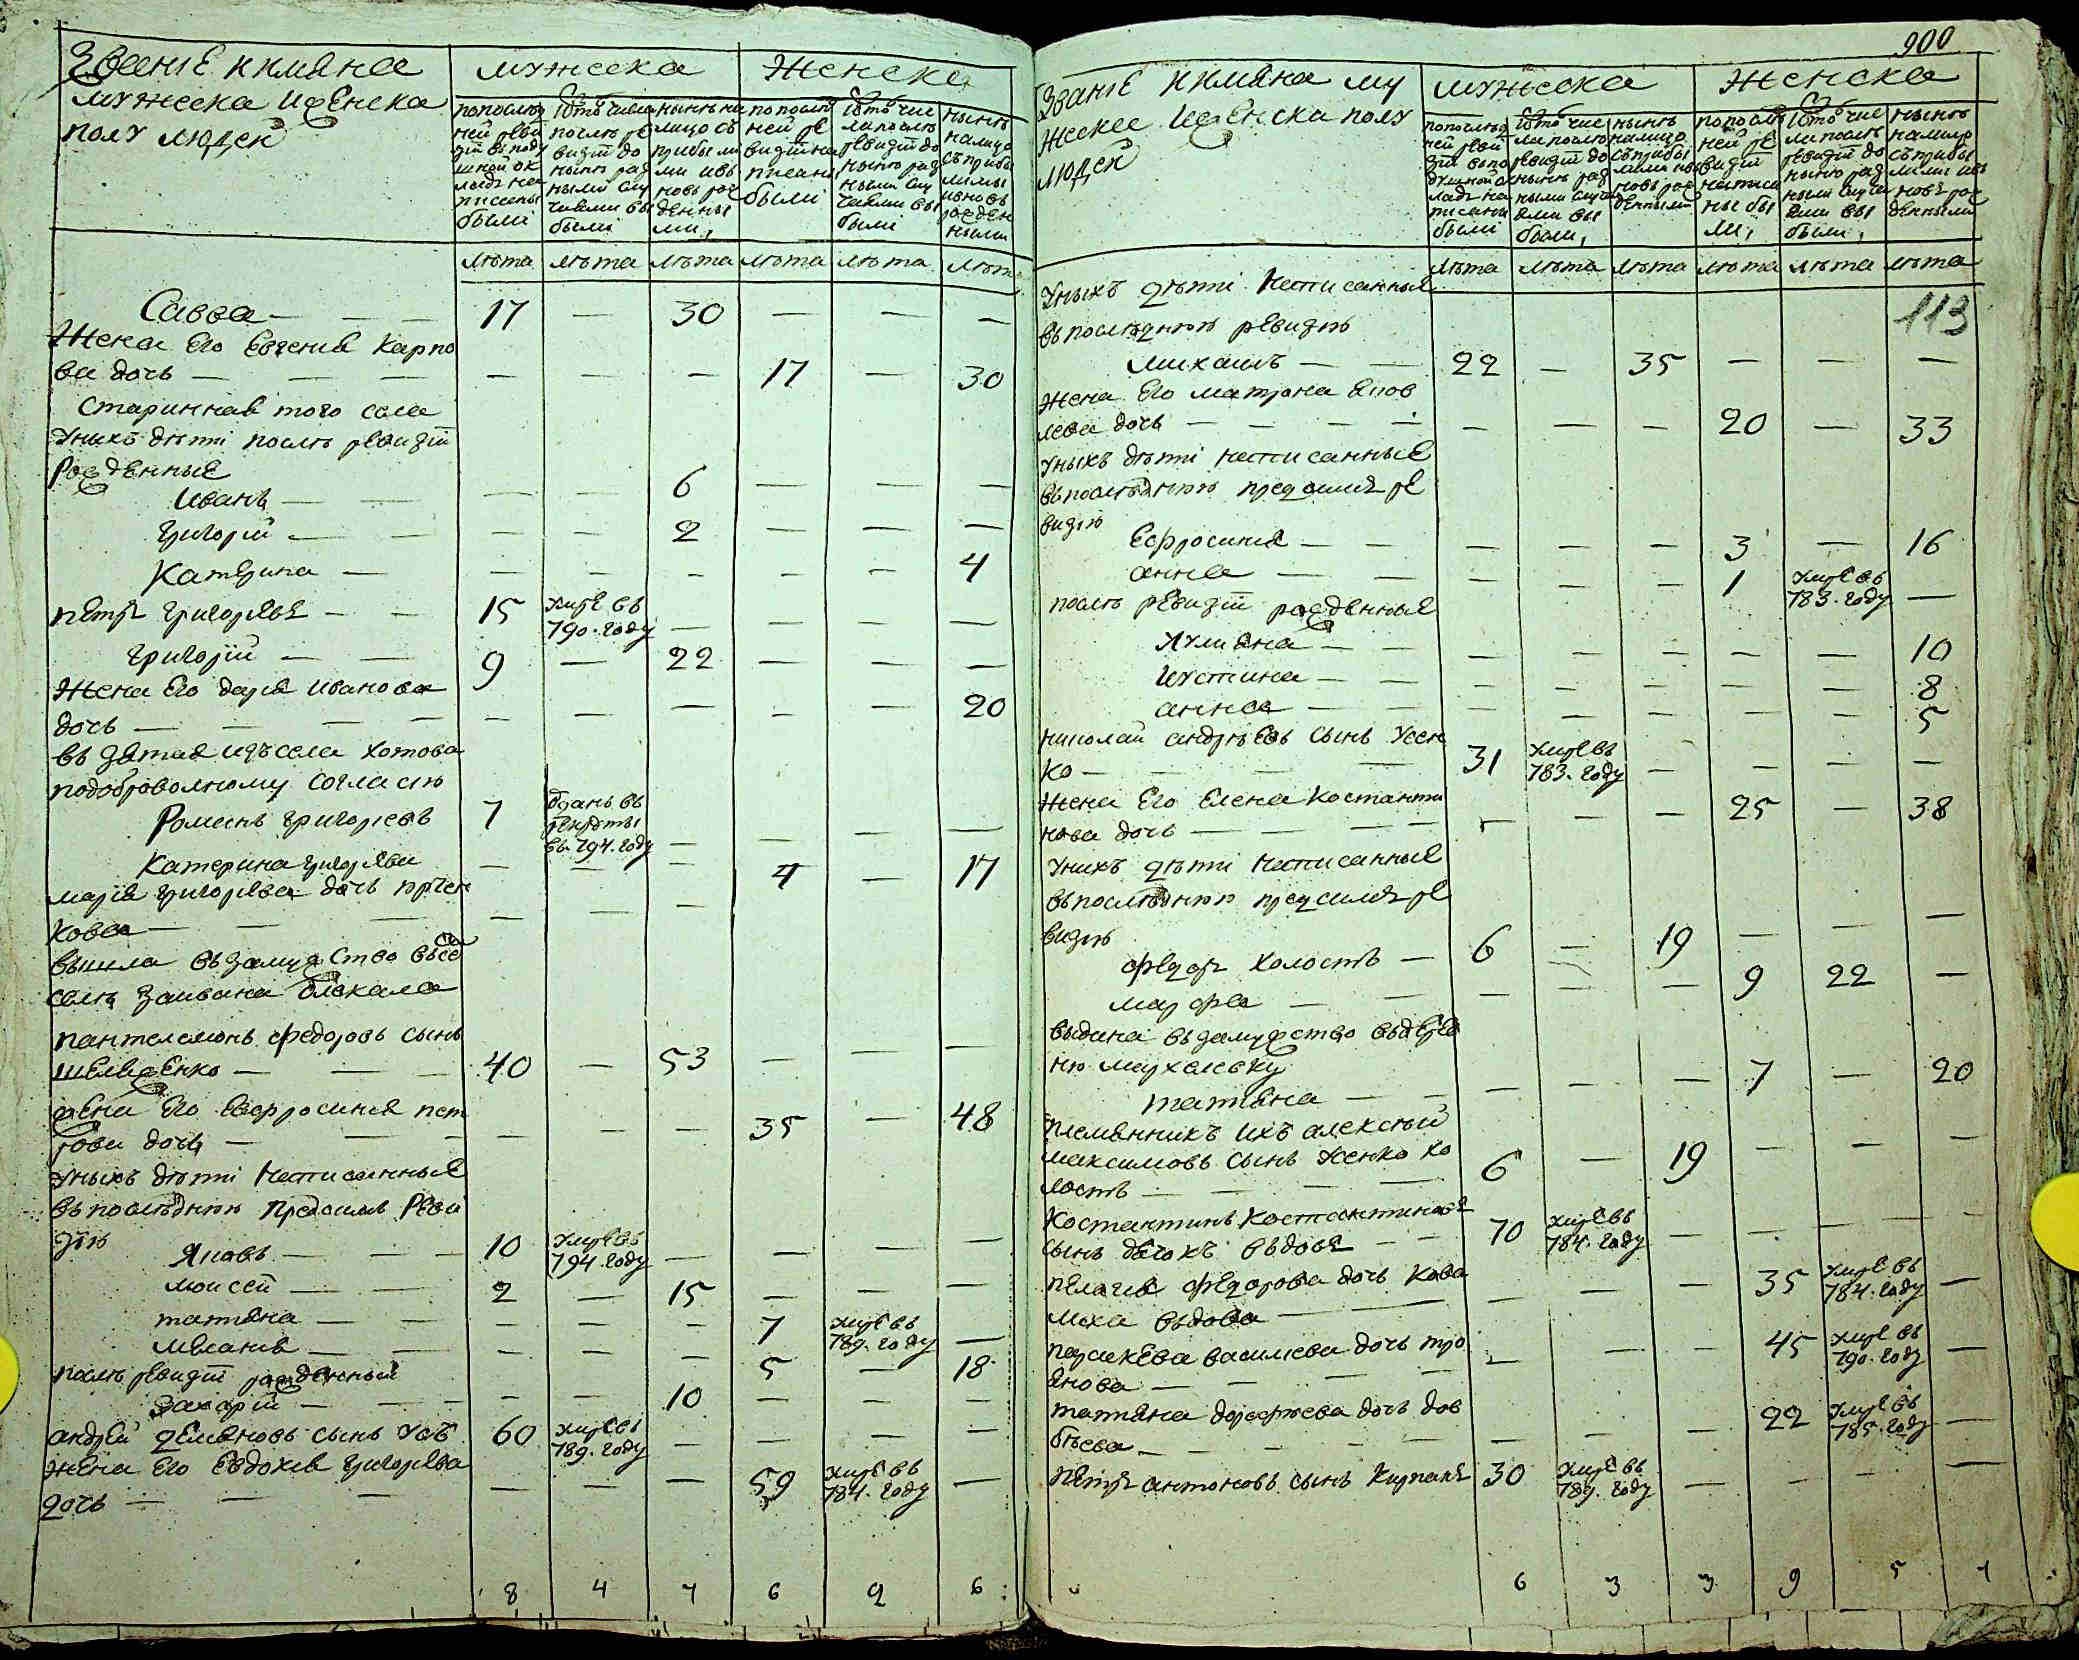 Званiе и имяна
мужеска и женска
полу людей
мужеска
женска
по послед
ней реви
зiи в поду
шной ок
ладъ на
писаны
были
изъ того числа
послѣ ре
визiи до
нынѣ раз
ными слу
чаями вы
были
нынѣ на
лицо съ
прибылы
ми и вь
новь рож
денны
ми,
по послѣд
ней ре
визiи на
писаны
были
изъ того чис
ла послѣ
ревизiи до
нынѣ раз
ными слу
чаями вы
были
нынѣ
налицо
съ прибы
лыми
и вновь
рожден
ными
лѣта лѣта лѣта лѣта лѣта лѣта
Савва — 17 — 30 — — —
Жена Его Евгениѧ Карпо
ва дочь — — — — 17 — 30
стариннаѧ того села
Унихъ дѣти послѣ ревизiи
рожденные
Иванъ — — — 6 — — —
Григорiй — — — 2 — — —
Катерина — — — — — — 4
Петръ Григорьевъ — 15 умре въ
790. году — — — —
Григорiй — 9 — 22 — — —
Жена Его Дарiя Иванова
дочь — — — — — — 20
въ зятья изъ села Хотова
по добровольному согласiю
Романъ Григорiевъ 7 отданъ въ
рекруты
въ 794. году — — — —
Катерина Григорьева — — — 4 — 17
Марiя Григорьева дочь
кова — — — —
вышла въ замужство въ се
селѣ за Ивана
Пантелемонъ Федоровъ сынъ
Шелуденко — 40 — 53 — — —
жена Его Евфросинiя Пет
рова дочь — — — — 35 — 48
Уныхъ дѣти написанные
въ послѣднюю пред симъ реви
зiю
Яковъ — 10 умре въ
794. году — — — —
Моисей — 2 — 15 — — —
Татiяна — — — — 7 умре въ
789. году —
Меланiя — — — — 5 — 18
послѣ ревизiи рожденный
Захарiй — — — 10 — — —
Андрей Демяновъ сынъ Усъ 60 умре въ
789. году — — — —
Жена Его Евдокiя Григорьева
дочь — — — — 59 умре въ
784. году —
8 4 7 6 2 6
900
Званiе и имяна му
жеска и женска полу
людей
мужеска
женска
по послед
ней реви
зiи въ по
душной о
кладъ на
писаны
были
изъ того чис
ла послѣ
ревизiи до
нынѣ раз
ными случа
ями вы
были,
нынѣ
налицо
съ прибы
лыми и въ
новь рож
денными
по послѣд
ней ре
визiи
написа
ны бы
ли,
изъ того чис
ла послѣ
ревизiи до
нынѣ раз
ными случа
ями вы
были,
нынѣ
налицо
съ прибы
лыми и въ
новъ рож
денными
лѣта лѣта лѣта лѣта лѣта лѣта
113
Уныхъ дѣти написанные
въ послѣднюю ревизiю
Михаилъ — 22 — 35 — — —
Жена Его Матрона Яков
лева дочь — — — — 20 — 33
Уныхъ дѣти написанные
въ послѣднюю пред симъ ре
визiю
Ефросиниѧ — — — — 3 — 16
Анна — — — — 1 умре въ
783. году —
послѣ ревизiи рожденные
Улияна — — — — — — 10
Иустина — — — — — — 8
Анна — — — — — — 5
Николай Андрѣевъ сынъ Усен
ко — 31 умре въ
783. году — — — —
Жена Его Елена Костанти
нова дочь — — — — 25 — 38
Унихъ дѣти написанные
въ послѣднюю пред симъ ре
визiю
Федоръ холостъ — 6 — 19 — — —
Марфа — — — — 9 22 —
выдана въ замужство въ дерев
ню Михелевку
Татiяна — — — — 7 — 20
племянникъ ихъ Алексѣй
Максимовъ сынъ Усенко хо
лостъ — 6 — 19 — — —
Костантинъ Костантиновъ
сынъ вдовъ — 70 умре въ
784. году — — — —
Пелагiя Федорова дочь Кова
лиха вдова — — — — 35 умре въ
784. году —
Параскева Василiева дочь Тро
янова — — — — 45 умре въ
790. году —
Татiяна Дорофѣева дочь Дов
бѣева — — — — 22 умре въ
785. году —
Петръ Антоновъ сынъ 30 умре въ
789. году — — — —
6 3 3 9 5 7